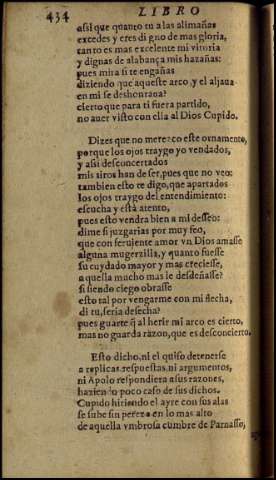 434 LIBRO
assi que quanto tu a las alimañas
excedes y eres di gno de mas gloria,
tanto es mas excelente mi vitoria
y dignas de alabança mis hazañas:
pues mira si te engañas
diziendo que aqueste arco, y el aljaua
en mi se deshonraua?
cierto que para ti fuera partido,
no auer visto con ella al Dios Cupido.
Dizes que no merezco este ornamento,
porque los ojos traygo yo vendados,
y assi desconcertados
mis tiros han de ser, pues que no veo:
tambien esto te digo, que apartados
los ojos traygo del entendimiento:
escucha y está atento,
pues esto vendra bien a mi desseo:
dime si juzgarias por muy feo,
que con feruiente amor vn Dios amasse
alguna mugerzilla, y quanto fuesse
su cuydado mayor y mas creciesse,
aquella mucho mas le desdeñasse?
si siendo ciego obrasse
esto tal por vengarme con mi flecha,
di tu, seria desecha?
pues guarte q̃ al herir mi arco es cierto,
mas no guarda razon, que es desconcierto.
Esto dicho, ni el quiso detenerse
a replicas, respuestas, ni argumentos,
ni Apolo respondiera a sus razones,
haziendo poco caso de sus dichos.
Cupido hiriendo el ayre con sus alas
se sube sin pereza en lo mas alto
de aquella vmbrosa cumbre de Parnasso,